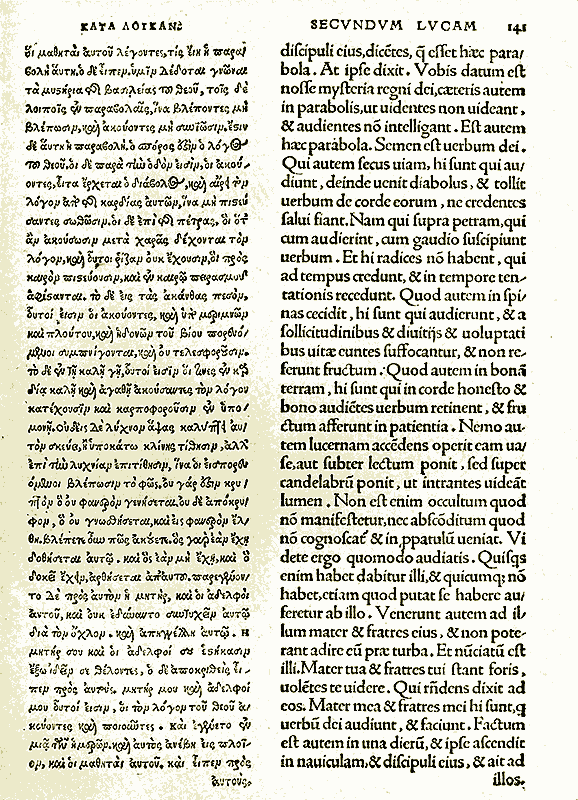 ΚΑΤΑ ΛΟΥΚΑΝ
SECVNDVM LVCAM 141
οἱ μαθηταὶ αὐτοῦ λέγοντες, τίς εἴη ἡ παρα/
βολὴ αὕτη. ὁ δὲ εἶπεν. ὑμῖν δέδοται γνῶναι
τὰ μυστήρια τῆς βασιλείας τοῦ θεοῦ, τοῖς δὲ
λοιποῖς ἐν παραβολαῖς, ἵνα βλέποντες μὴ
βλέπωσιν, καὶ ἀκούοντες μὴ συνίωσιν. ἔστιν
δὲ αὕτη ἡ παραβολή. ὁ σπόρος ἐστὶν ὁ λόγος
τοῦ θεοῦ. οἱ δὲ παρὰ τὴν ὁδόν εἰσιν, οἱ ἀκού/
οντες, εἶτα ἔρχεται ὁ διάβολος, καὶ αἴρει τὸν
λόγον ἀπὸ τῆς καρδίας αὐτῶν, ἵνα μὴ πιστεύ
σαντες σωθῶσιν. οἱ δὲ ἐπὶ τῆς πέτρας, οἳ ὅτ
ἂν ἀκούσωσιν μετὰ χαρᾶς δέχονται τὸν
λόγον, καὶ οὗτοι ῥίζαν οὐκ ἔχουσιν, οἳ πρὸς
καιρὸν πιστεύουσιν, καὶ ἐν καιρῷ πειρασμοῦ
ἀφίστανται. τὸ δὲ εἰς τὰς ἀκάνθας πεσὸν,
οὗτοί εἰσιν οἱ ἀκούοντες, καὶ ὑπὸ μεριμνῶν
καὶ πλούτου, καὶ ἡδονῶν τοῦ βίου πορευό/
μενοι συμπνίγονται, καὶ οὐ τελεσφοροῦσιν.
τὸ δὲ ἐν τῇ καλῇ γῇ, οὗτοί εἰσιν οἵτινες ἐν καρ
δίᾳ καλῇ καὶ ἀγαθῇ ἀκούσαντες τὸν λόγον
κατέχουσιν καὶ καρποφοροῦσιν ἐν ὑπο/
μονῇ. οὐδεὶς δὲ λύχνον ἅψας καλύπτει αὐ/
τὸν σκεύει, ἢ ὑποκάτω κλίνης τίθησιν, ἀλλ
ἐπὶ τὴν λυχνίαν ἐπιτίθησιν, ἵνα οἱ εἰσπορευ
όμενοι βλέπωσιν τὸ φῶς, οὐ γάρ ἐστιν κρυ
πτὸν ὃ οὐ φανερὸν γενήσεται. οὐ δὲ ἀπόκρυ/
φον, ὃ οὐ γνωσθήσεται, καὶ εἰς φανερὸν ἔλ/
θῃ. βλέπετε οὖν πῶς ἀκούετε. ὃς γὰρ ἐὰν ἔχῃ
δοθήσεται αὐτῷ. καὶ ὃς ἐὰν μὴ ἔχῃ, καὶ ὃ
δοκεῖ ἔχειν, ἀρθήσεται ἀπ αὐτοῦ. παρεγένον/
το δὲ πρὸς αὐτὸν ἡ μήτηρ, καὶ οἱ ἀδελφοὶ
αὐτοῦ, καὶ οὐκ ἐδύναντο συντυχεῖν αὐτῷ
διὰ τὸν ὄχλον. καὶ ἀπηγγέλη αὐτῷ. ἡ
μήτηρ σου καὶ οἱ ἀδελφοί σου ἑστήκασιν
ἔξω ἰδεῖν σε θέλοντες, ὁ δὲ ἀποκριθεὶς εἶ/
πεν πρὸς αὐτούς, μήτηρ μου καὶ ἀδελφοί
μου οὗτοί εἰσιν, οἱ τὸν λόγον τοῦ θεοῦ ἀ/
κούοντες καὶ ποιοῦντες. καὶ ἐγένετο ἐν
μιᾷ τῶν ἡμερῶν, καὶ αὐτὸς ἀνέβη εἰς πλοῖ/
ον, καὶ οἱ μαθηταὶ αὐτοῦ, καὶ εἶπεν πρὸς
αὐτούς.
discipuli eius, dicētes, q̄ esset hæc para/
bola. At ipse dixit. Vobis datum est
nosse mysteria regni dei, cæteris autem
in parabolis, ut uidentes non uideant,
& audientes nō intelligant. Est autem
hæc parabola. Semen est uerbum dei.
Qui autem secus uiam, hi sunt qui au/
diunt, deinde uenit diabolus, & tollit
uerbum de corde eorum, ne credentes
salui fiant. Nam qui supra petram, qui
cum audierint, cum gaudio suscipiunt
uerbum. Et hi radices nō habent, qui
ad tempus credunt, & in tempore ten/
tationis recedunt. Quod autem in spi/
nas cecidit, hi sunt qui audierunt, & a
sollicitudinibus & diuitijs & uoluptati
bus uitæ euntes suffocantur, & non re/
ferunt fructum. Quod autem in bonā
terram, hi sunt qui in corde honesto &
bono audiētes uerbum retinent, & fru
ctum afferunt in patientia. Nemo au/
tem lucernam accēdens operit eam ua/
se, aut subter lectum ponit, sed super
candelabrū ponit, ut intrantes uideāt
lumen. Non est enim occultum quod
nō manifestetur, nec abscōditum quod
nō cognoscat̄ & in ꝓpatulū ueniat. Vi
dete ergo quomodo audiatis. Quisq̢s
enim habet dabitur illi, & quicumq; nō
habet, etiam quod putat se habere au/
feretur ab illo. Venerunt autem ad il/
lum mater & fratres eius, & non pote/
rant adire eū præ turba. Et nūciatū est
illi. Mater tua & fratres tui stant foris,
uolētes te uidere. Qui rn̄dens dixit ad
eos. Mater mea & fratres mei hi sunt, q
uerbū dei audiunt, & faciunt. Factum
est autem in una dierū, & ipse ascendit
in nauiculam, & discipuli eius, & ait ad
illos.